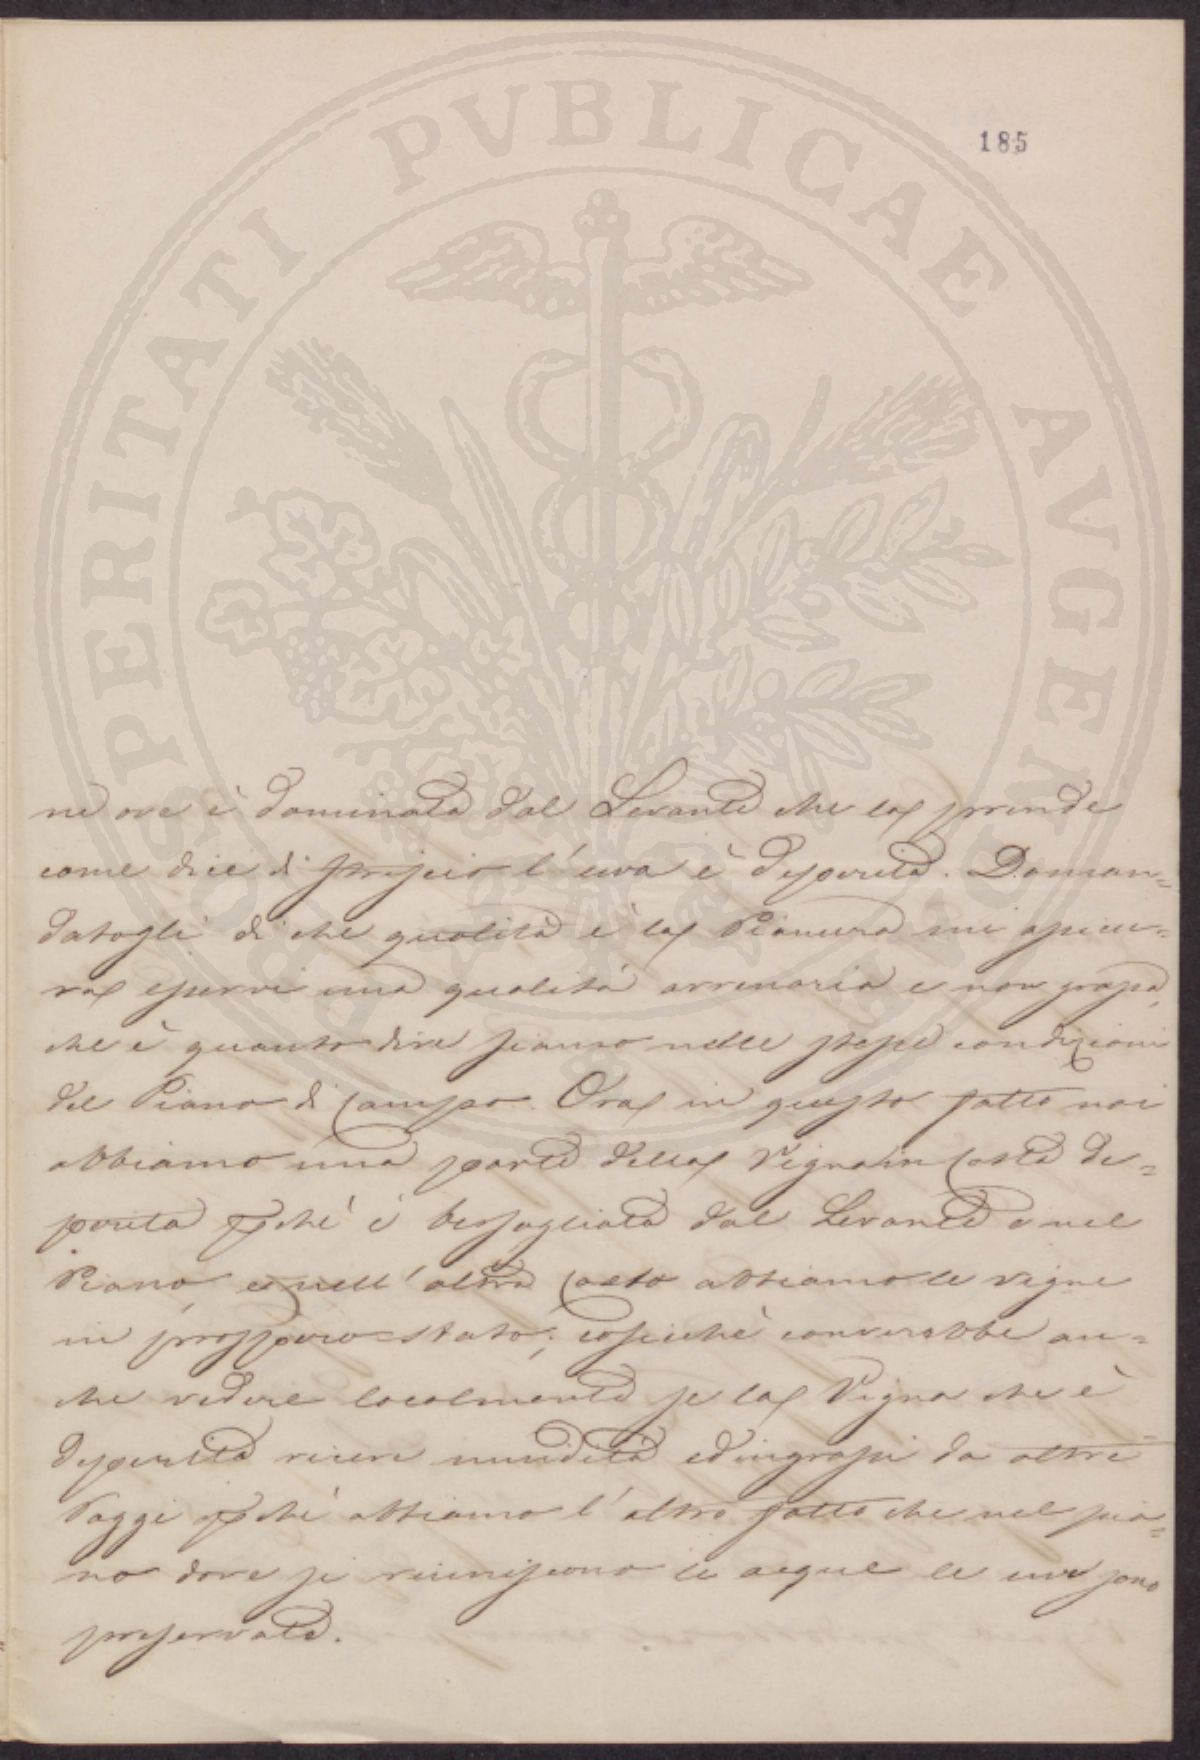 185
ne ove è dominata dal Levante che la prende
come dice di striscio l'uva è deperita. Doman=
datogli di che qualità è la Pianura mi assicu=
ra esservi una qualità arrenaria e non grassa,
che è quanto dire siamo nelle stesse condizioni
del Piano di Campo. Ora in questo fatto noi
abbiamo una parte della Vigna in Costa de=
perita pchè è bersagliata dal Levante e nel
Piano, e nell'altra Costa abbiamo le vigne
in prospero stato; cosicchè converebbe an=
che vedere localmente se la Vigna che è
deperita riceve umidità ed ingrassi da altri
Poggi pchè abbiamo l'altro fatto che nel pia=
no dove si riuniscono le acque le uve sono
preservate.
PROSPERITATI PVBLICAE AVGENDAE